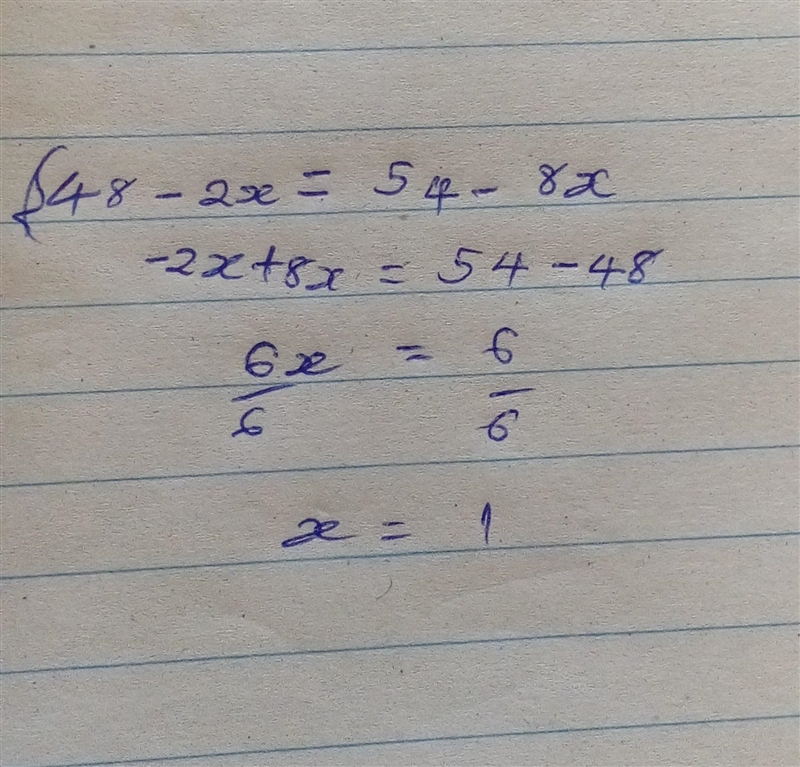 48 - 2x = 54 - 8x
-2x + 8x = 54 - 48
6x = 6
6 6
x = 1